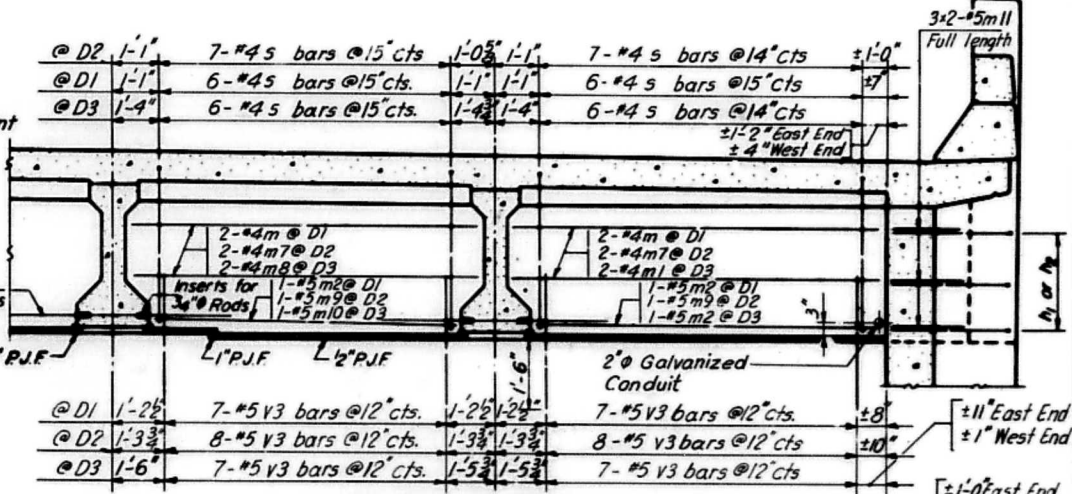 3x2-#5m11
Full length
@ D2 1'-1" 7-#4 s bars @15"cts 1'-0 5/8" 1'-1" 7-#4 s bars @14"cts ±1'-0"
@ D1 1'-1" 6-#4 s bars @15"cts. 1'-1" 1'-1" 6-#4 s bars @15"cts ±7"
@ D3 1'-4" 6-#4 s bars @15"cts. 1'-4" 6-#4 s bars @14"cts
±1'-2" East End
± 4" West End
2-#4m @ D1
2-#4m7@ D2
2-#4m8@ D3
2-#4m @ D1
2-#4m7@ D2
2-#4m1@ D3
Inserts for
3/4"ϕ Rods
1-#5m2@ D1
1-#5m9@ D2
1-#5m10@ D3
1-#5m2@ D1
1-#5m9@ D2
1-#5m2@ D3
3"
h1 or h2
P.J.F.
1"P.J.F.
1/2"P.J.F.
1'-6"
2"ϕ Galvanized
Conduit
@ D1 1'-2½" 7-#5 v3 bars @12"cts. 1'-2½" 1'-2½" 7-#5 v3 bars @12"cts. ±8"
@ D2 1'-3¾" 8-#5 v3 bars @12"cts. 1'-3¾" 1'-3¾" 8-#5 v3 bars @12"cts ±10"
@ D3 1'-6" 7-#5 v3 bars @12"cts. 1'-5¾" 1'-5¾" 7-#5 v3 bars @12"cts
±11"East End
±1"West End
±1'-0"East End